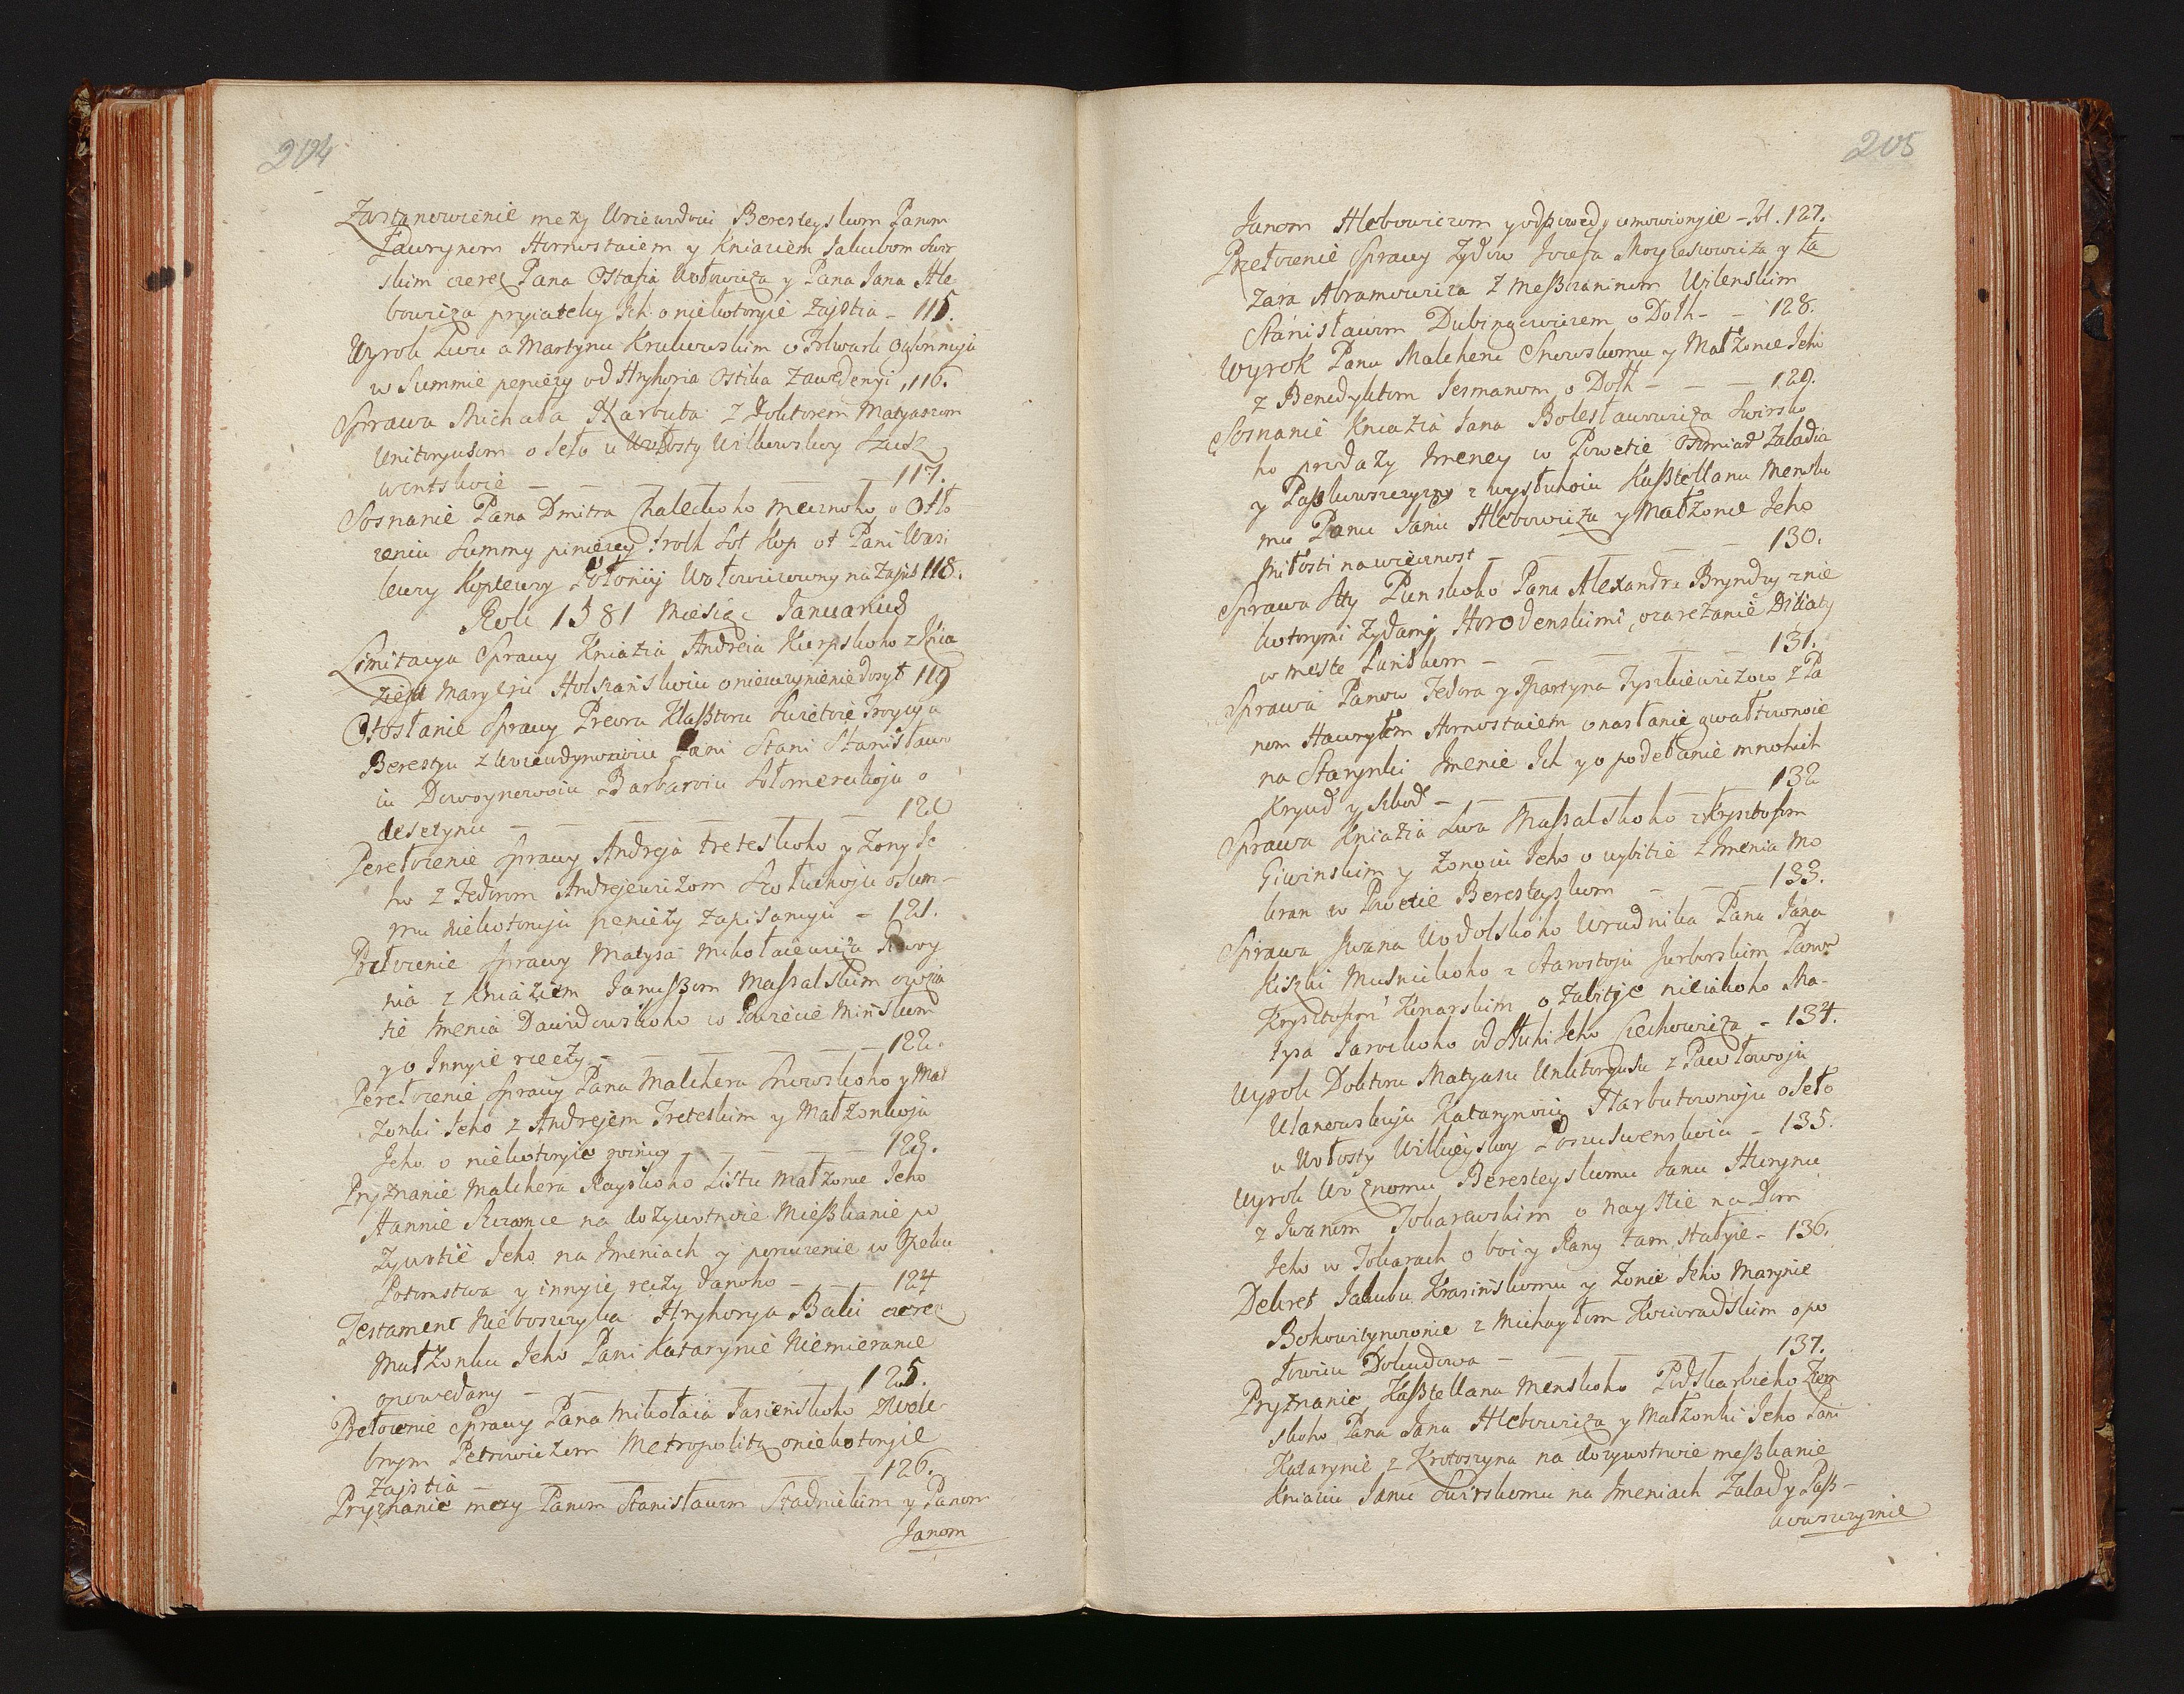 204
Zastanowienie mezy Uriewdowi Beresteyskom Panom
Ławrynom Hornostaiem y Kniaziem Jakubom Swir
skim czerez Pana Ostafia Wołowicza y Pana Jana Hle
bowicza pryiateley Ich o niekotoryie zajstia - 115.
Wyrok Lwu a Martynu Krukowskim o Folwark
w Summie peniezy od Hryhoria Ostika zawedenyi, 116.
Sprawa Michała Harbuta z Doktorem Matyaszom
Unitoryusom o Seło u Wołosty Wilkowskoy
wentskoie - - - 117.
Sosnanie Pana Dmitra Chaleckoho Mecznoho o Otło
zeniu Summy piniezey troch Sot Kop ot Pani Wasi
lewy Koptewy Połonij Wołowiczowny na Zapis 118.
Roku 1581 Miesiąc Januariud
Limitacya Sprawy Kniazia Andreia Kurpskoho z Knia
zieju Maryeju Holszanskoiu o nieuczynienie dosyt 119
Otosłanie Sprawy Preora Klasztoru Swietoie Troycy u
Berestyu z Woiewodynoiu Pani Stani Stanisławo
iu Dowoynowoiu Barbaroiu Sołomereckoju o
desetynu - - - 120
Perełozenie Sprawy Andreja Treteskoho y Zony Je
ho z Fedorom Andrejewiczom Szołuchoju o Sum-
mu niekotoruju peniezy zapisanuju - 121.
Prełozenie Sprawy Matysa Mikołaiewicza Sawoy
nia z Kniaziem Januszom Massalskim o
tie Imenia Dawidowskoho w Powiecie Minskom
y o Innyie rzeczy - - - 122.
Perełozenie Sprawy Pana Malchera Snowskoho y Mał
zonki Jeho z Andrejem Treteskim y Małzonkoju
Jeho o niekotoryie - - - 123.
Pryznanie Malchera Rayskoho Listu Małzonce Jeho
Hannie na dozywotnoie Mieszkanie po
Zywotie Jeho na Imeniach y poruczenie w Opeku
Potomstwa y innyie reczy danoho - - - 124
Testament Nieboszczyka Hryhorya Baki czerez
Małzonku Jeho Pani Katarynie Niemieranie
opowedany - - - 125.
Prełozenie Sprawy Pana Mikołaia Jasienskoho z Wole
brym Petrowiczem Metropolitą o niekotoryie
zajstia - - - 126.
Pryznanie mezy Panom Stanisławom Stadnickim y Panom
Janom
205
Janom Hlebowiczom y odpowedy umowionyie - fol. 127.
Przełozenie Sprawy Zydow Jozefa Moyzeszowicza y Ła
zara Abramowicza z Meszczaninom Wilenskim
Stanisławom Dubinowiczem o Dołh - - 128.
Wyrok Panu Malcheru Snowskomu y Małzonce Jeho
z Benedyktom Jesmanom o Dołh - - - 129.
Sosnanie Kniazia Jana Bolesławowicza Swirsko
ho prodazy Imeney w Powetie Oszmian Zaladia
y Paszkowszczyzny z wysłuhoiu Kasztellanu Mensko
mu Panu Janu Hlebowiczu y Małzonce Jeho
Miłosti na wiecznost - - - 130.
Sprawa Stty Punskoho Pana Alexandra Bryndzy z nie
kotorymi Zydami Horodenskimi, o zarezanie Ditiaty
w meste Punskom - - - 131.
Sprawa Panow Fedora y Martyna Tyszkiewiczow z Pa
nom Hawryłom Hornostaiem o nasłanie gwałtownoie
na Starynki Imenie Ich y o podełanie mnohich
Krywd y Szkod - - - 132
Sprawa Kniazia Lwa Massalskoho z Krysztofom
Giwinskim y Zonoiu Jeho o wybitie z Imenia Mo
kran w Powetie Beresteyskom - - - 133.
Sprawa Iwana Wodolskoho Wradnika Pana Jana
Kiszki Musnickoho z Starostoju Jurborskim Panom
Krysztofom Konarskim o zabitie niejakoho Ma-
tysa Jarockoho od Stuhi Jeho Czechowicza - 134.
Wyrok Doktoru Matyasu Unktoryusu z Pawłowoju
Ulanowskuju Katarynoiu Harbutownoju o Seło
u Wołosty Wilkieyskoy - 135.
Wyrok Woznomu Beresteyskomu Janu Hurynu
z Iwanom Tokarewskim o nayście na Dom
Jeho w Tokarach o boi y Rany tam stałyie - 136.
Dekret Jakubu Krasinskomu y Zonie Jeho Marynie
Bohowitynownie z Michayłom Kociradskim o po
łowicu Dokudowa - - - 137.
Pryznanie Kasztellana Menskoho Podskarbieho Zem
skoho Pana Jana Hlebowicza y Małzonki Jeho Pani
Katarynie z Krotoszyna na dozywotnoie meszkanie
Kniaziu Janu Swirskomu na Imeniach Zalad y Pasz-
kowszczyznie